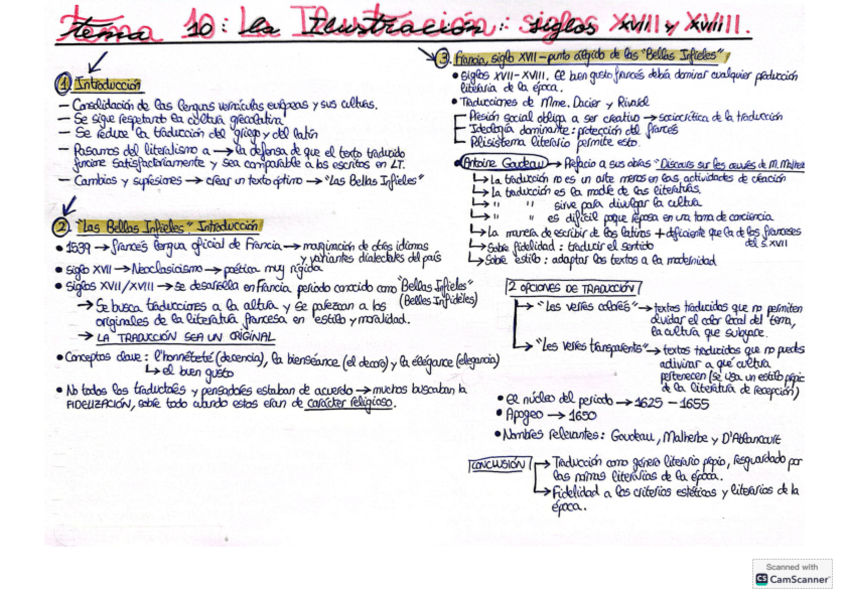 tema 10: La Ilustración: siglos XVII y XVIII.
① Introducción
— Consolidación de las lenguas vernáculas europeas y sus culturas.
— Se sigue respetando la cultura grecolatina
— Se reduce la traducción del griego y del latín
— Pasamos del literalismo a → la defensa de que el texto traducido
funcione satisfactoriamente y sea comparable a los escritos en LT.
— Cambios y supresiones → crear un texto óptimo → "Las Bellas Infieles"
②. "Las Bellas Infieles" Introducción
• 1539 → francés lengua oficial de Francia → marginación de otros idiomas
y variantes dialectales del país
• siglo XVII → Neoclasicismo → poética muy rígida
• Siglos XVII/XVIII → se desarrolla en Francia período conocido como "Bellas Infieles"
(Belles Infidèles)
→ Se busca traducciones a la altura y se parezcan a los
originales de la literatura francesa en estilo y moralidad.
→ LA TRADUCCIÓN SEA UN ORIGINAL
• Conceptos clave: l'honnêteté (decencia), la bienséance (el decoro) y la élégance (elegancia)
↳ el buen gusto
• No todos los traductores y pensadores estaban de acuerdo → muchos buscaban la
FIDELIZACIÓN, sobre todo cuando estos eran de carácter religioso.
③. Francia, siglo XVII – punto álgido de las "Bellas Infieles"
• Siglos XVII – XVIII. El buen gusto francés debía dominar cualquier producción
literaria de la época.
• Traducciones de Mme. Dacier y Rivarol
Presión social obliga a ser creativo → sociocrítica de la traducción
Ideología dominante: protección del francés
Polisistema literario permite esto.
• Antoine Goudeau → Prefacio a sus obras "Discours sur les œuvres de M. Malherbe
↳ La traducción no es un arte menos en las actividades de creación
↳ La traducción es la madre de las literaturas.
↳ " " sirve para divulgar la cultura
↳ " " es difícil porque reposa en una toma de conciencia
↳ La manera de escribir de los latinos + deficiente que la de los franceses
del s. XVII
↳ Sobre fidelidad: traducir el sentido
↳ Sobre estilo: adaptar los textos a la modernidad
2 OPCIONES DE TRADUCCIÓN
→ "Les verres colorés" → textos traducidos que no permiten
olvidar el color local del tema,
la cultura que subyace.
→ "Les verres transparents" → textos traducidos que no puedes
adivinar a qué cultura
pertenecen (se usa un estilo propio
de la literatura de recepción)
• El núcleo del periodo → 1625 – 1655
• Apogeo → 1650
• Nombres relevantes: Goudeau, Malherbe y D'Ablancourt
CONCLUSIÓN → Traducción como género literario propio, resguardado por
las normas literarias de la época.
→ Fidelidad a los criterios estéticos y literarios de la
época.
Scanned with
CS CamScanner